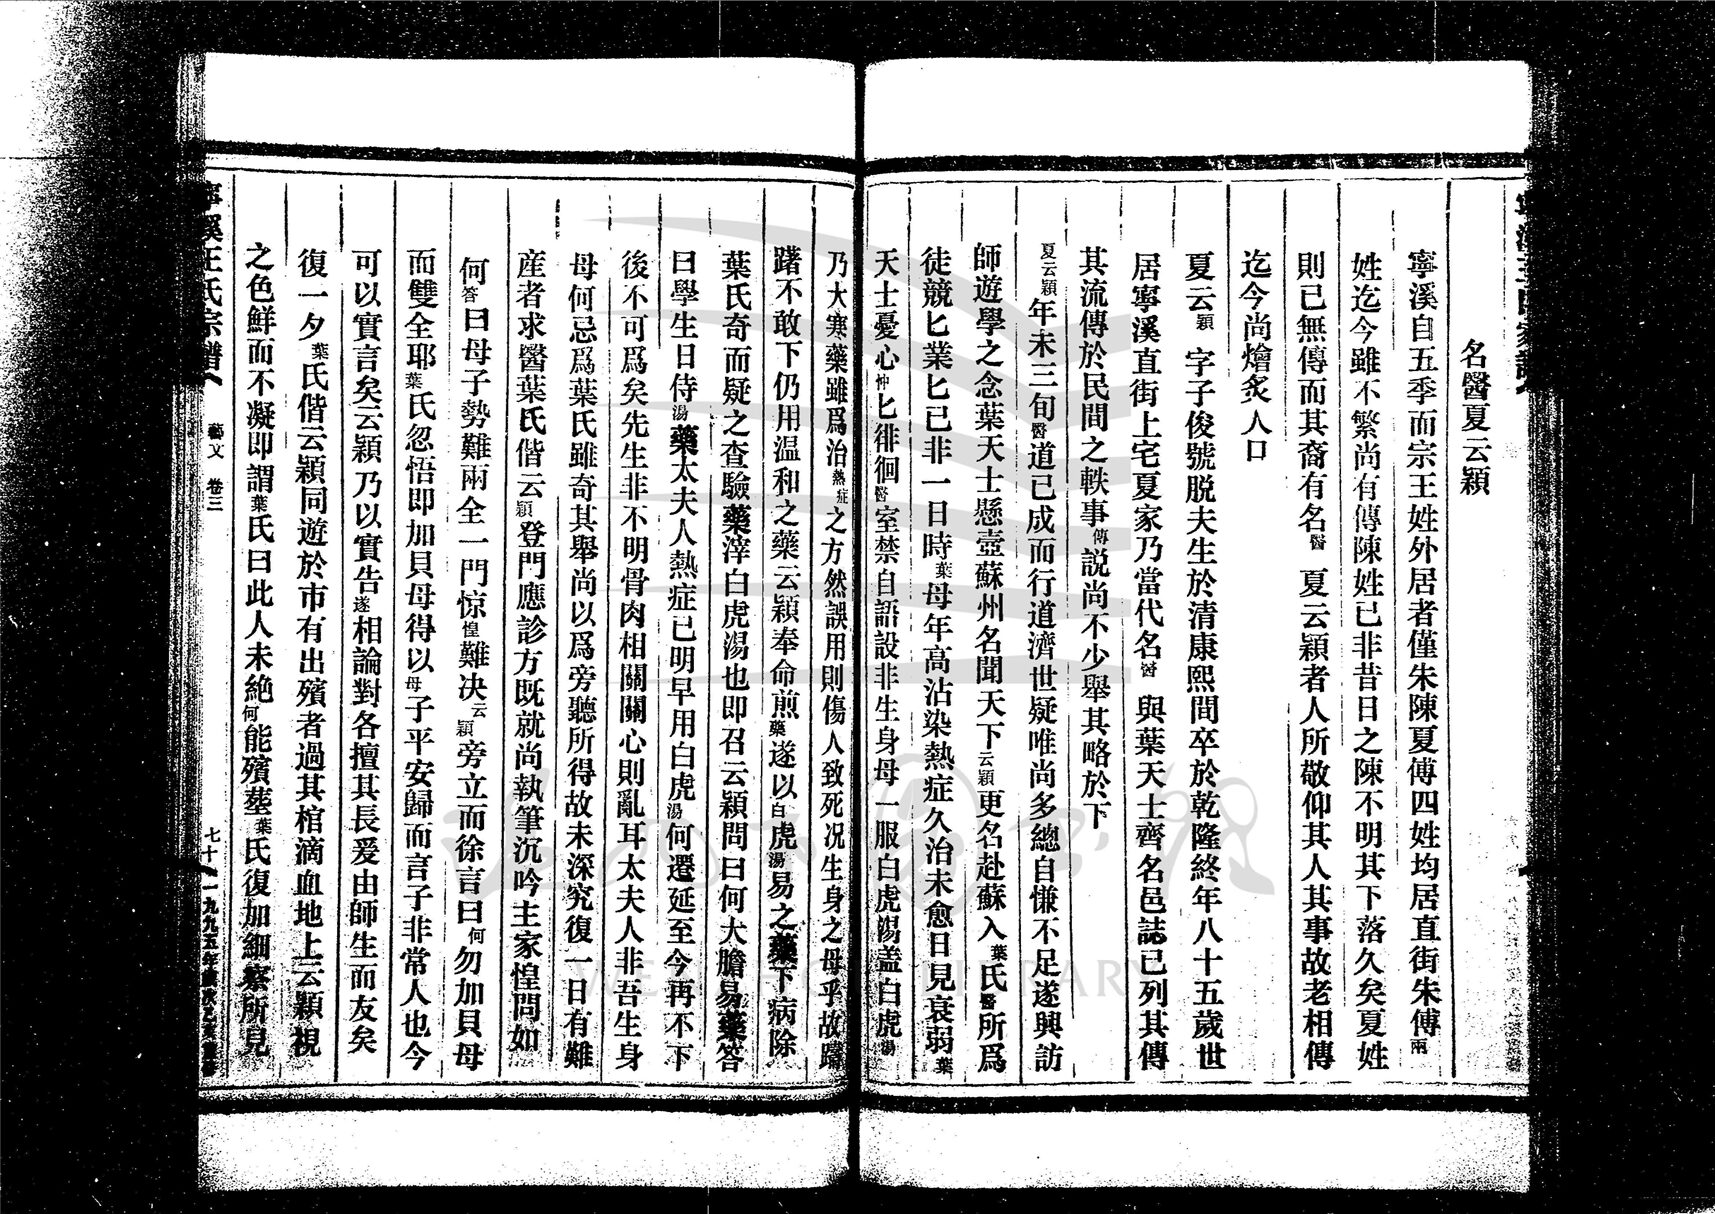 名醫夏云穎
寧溪自五季而宗王姓外居者僅朱陳夏傅四姓均居直街朱傅兩
姓迄今雖不繁尚有傳陳姓已非昔日之陳不明其下落久矣夏姓
則已無傳而其裔有名醫夏云穎者人所敬仰其人其事故老相傳
迄今尚燴炙人口
夏云穎字子俊號脱夫生於清康熙間卒於乾隆終年八十五歲世
居寧溪直街上宅夏家乃當代名醫與葉天士齊名邑誌已列其傳
其流傳於民間之軼事傳説尚不少舉其略於下
夏云穎年未三旬醫道已成而行道濟世疑唯尚多總自慊不足遂興訪
師遊學之念葉天士懸壺蘇州名聞天下云穎更名赴蘇入葉氏醫所爲
徒競匕業匕已非一日時葉母年高沾染熱症久治未愈日見衰弱葉
天士憂心忡匕徘徊醫室禁自語設非生身母一服白虎陽盖白虎湯
乃大寒藥雖爲治熱症之方然誤用則傷人致死况生身之母乎故躊
躇不敢下仍用温和之藥云穎奉命煎藥遂以自虎湯易之藥下病除
葉氏奇而疑之查驗藥滓白虎湯也即召云穎問曰何大膽易藥答
曰學生日侍湯藥太夫人熱症已明早用白虎湯何遷延至今再不下
後不可爲矣先生非不明骨肉相關關心則亂耳太夫人非吾生身
母何忌爲葉氏雖奇其舉尚以爲旁聽所得故未深究復一日有難
産者求醫葉氏偕云穎登門應診方既就尚執筆沉吟主家惶問如
何答曰母子勢難兩全一門惊惶難决云穎旁立而徐言曰何勿加貝母
而雙全耶葉氏忽悟即加貝母得以母子平安歸而言子非常人也今
可以實言矣云穎乃以實告遂相論對各擅其長爰由師生而友矣
復一夕葉氏偕云穎同遊於市有出殯者過其棺滴血地上云穎視
之色鮮而不凝即謂葉氏曰此人未絶何能殯塟葉氏復加細察所見
寧溪王氏宗譜 藝文 卷三 七十 一九九五年歲次乙亥重修